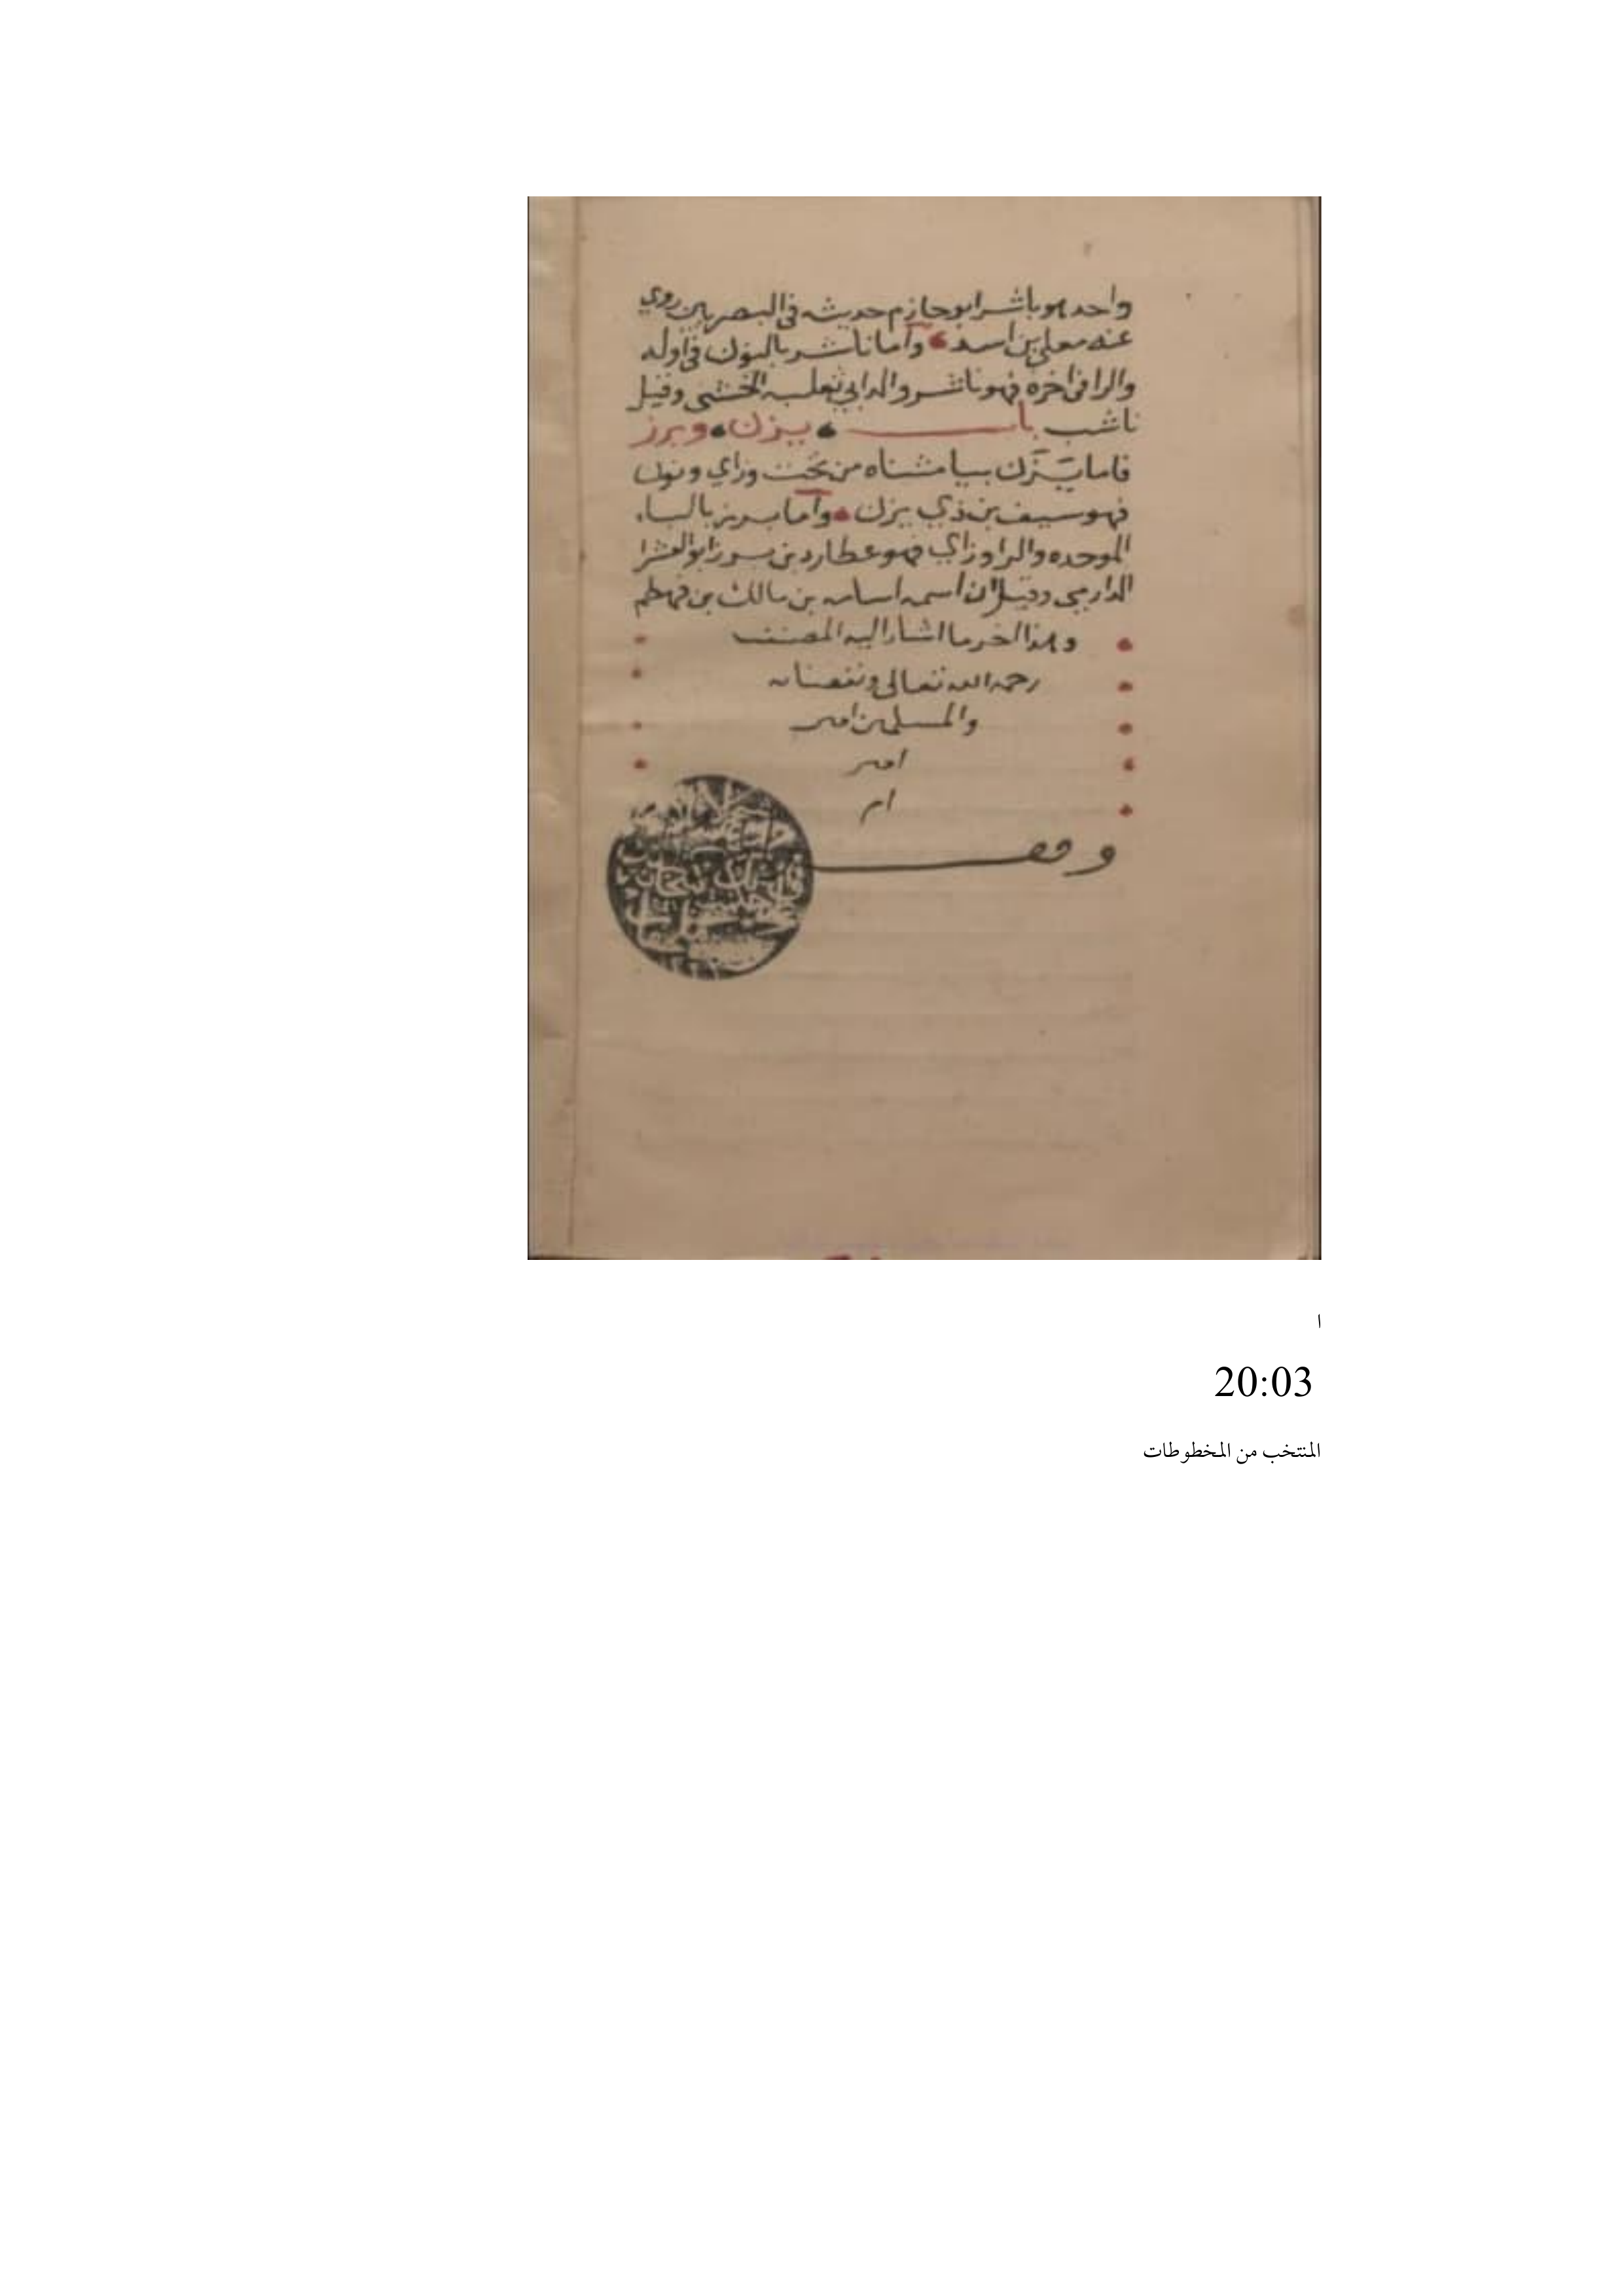 واحد هو باشر ابو حازم حديثه في البصريين روي
عنه معلي بن اسد وأما ناشر بالنون في اوله
والرا في اخره فهو ناشر والد ابي ثعلبه الخشني وقيل
ناشب باب يزن وبرز
فاما يَزَن بيا مثناه من تحت وزاي ونون
فهو سيف بن ذي يزن وأما برز بالباء
الموحده والرا وزاي فهو عطارد بن برز ابو العشرا
الدارمي وقيل ان اسمه اسامه بن مالك بن قهطم
وهذا اخر ما اشار اليه المصنف
رحمه الله تعالى ونفعنا به
والمسلمين امين
امين
ام
وقف
ا
20:03
المنتخب من المخطوطات